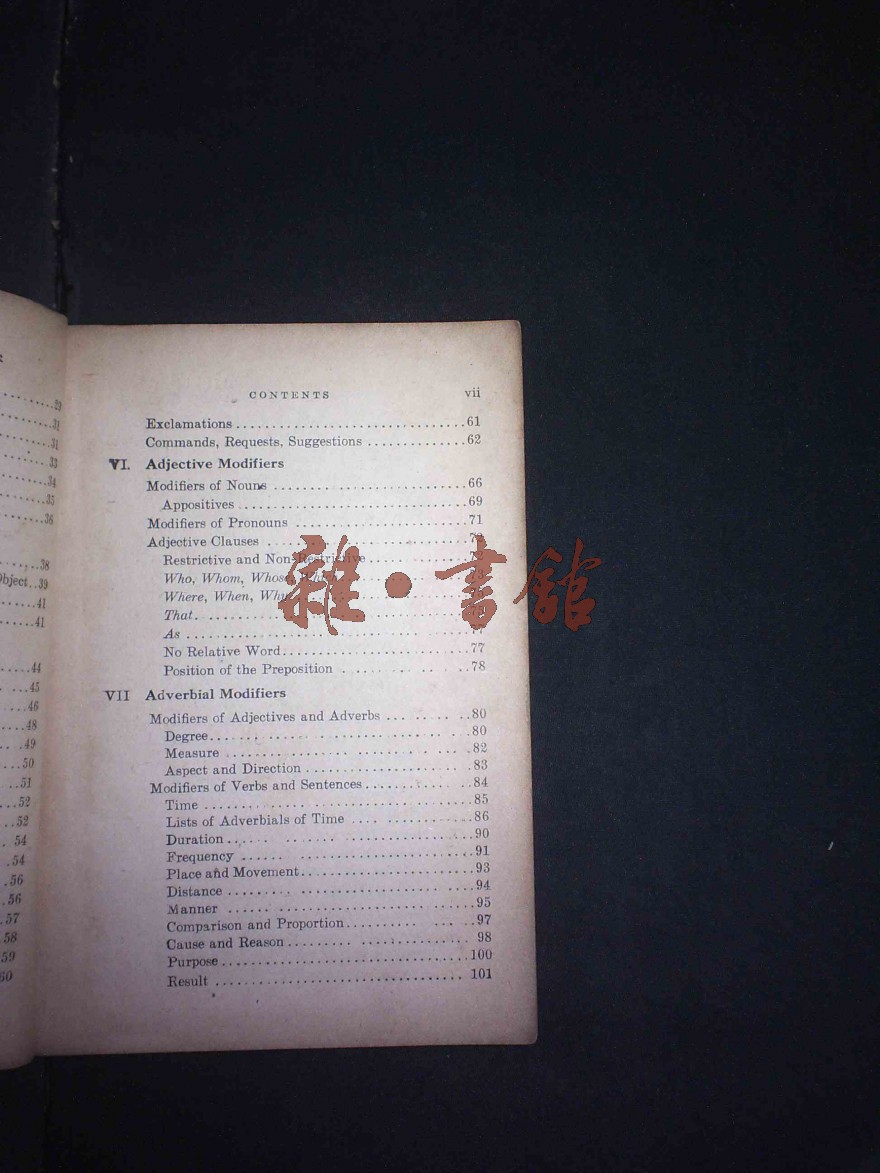 29
31
31
33
34
35
36
38
Object..39
41
41
44
45
46
48
49
50
51
52
52
54
54
56
56
57
58
59
60
CONTENTS vii
Exclamations 61
Commands, Requests, Suggestions 62
VI. Adjective Modifiers
Modifiers of Nouns 66
Appositives 69
Modifiers of Pronouns 71
Adjective Clauses
Restrictive and Non-Restrictive
Who, Whom, Whose, Which
Where, When, Why
That
As 77
No Relative Word 77
Position of the Preposition 78
VII Adverbial Modifiers
Modifiers of Adjectives and Adverbs 80
Degree 80
Measure 82
Aspect and Direction 83
Modifiers of Verbs and Sentences 84
Time 85
Lists of Adverbials of Time 86
Duration 90
Frequency 91
Place and Movement 93
Distance 94
Manner 95
Comparison and Proportion 97
Cause and Reason 98
Purpose 100
Result 101
雜·書館